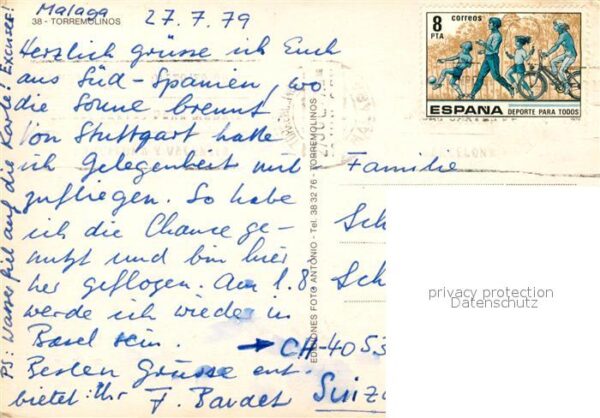 Malaga 27.7.79
38 - TORREMOLINOS
Herzlich grüsse ich Euch
aus Süd-Spanien, wo
die Sonne brennt
Von Stuttgart hatte
ich Gelegenheit mit
zufliegen. So habe
ich die Chance ge-
nutzt und bin hier
her geflogen. Am 1.8.
werde ich wieder in
Basel sein.
Besten Grüsse ent-
bietet: Ihr F.
PS: Wasser fiel auf die Karte! Excusez!
EDICIONES FOTO ANTONIO - Tel. 38 32 76 - TORREMOLINOS
8
PTA
correos
ESPAÑA
DEPORTE PARA TODOS
Familie
Sch
Sch
→ CH-4053
Suiza
privacy protection
Datenschutz